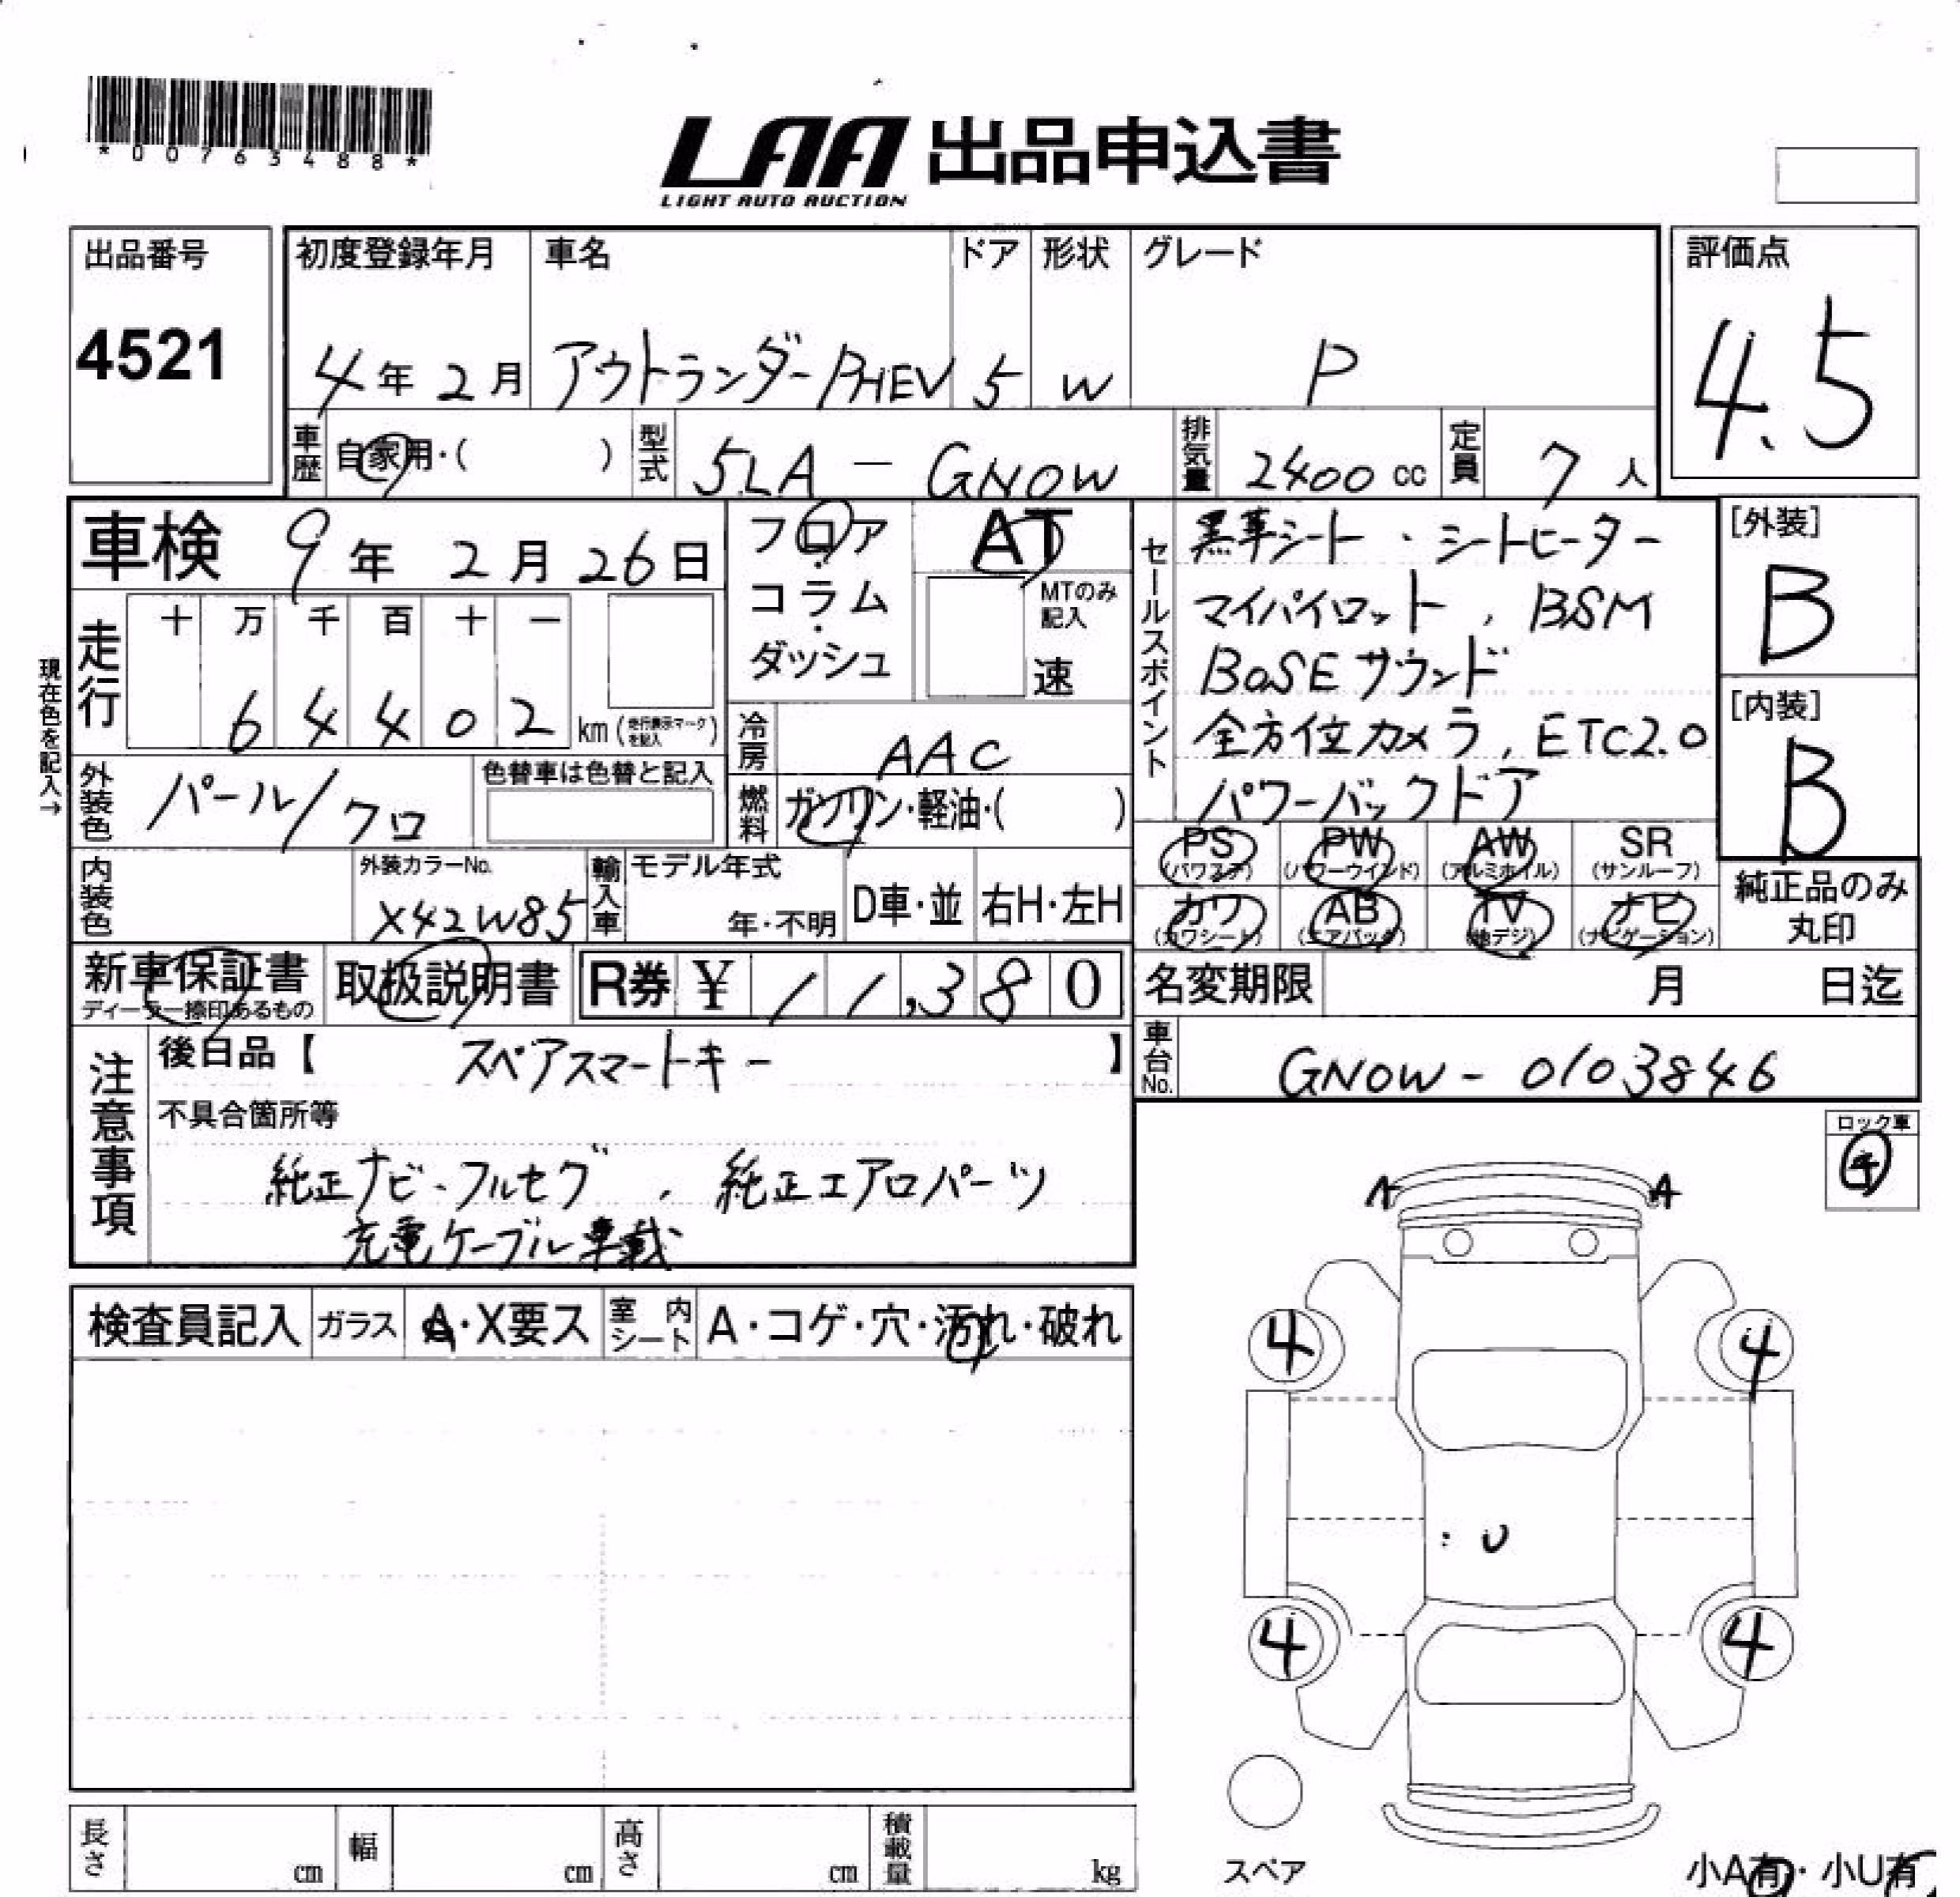 *00763488*
LAA 出品申込書
LIGHT AUTO AUCTION
出品番号
4521
初度登録年月 車名 ドア 形状 グレード
4年2月 アウトランダーPHEV 5 W P
評価点
4.5
車歴 自家用・( ) 型式 5LA - GN0W 排気量 2400cc 定員 7人
車検 9年2月26日
フロア・コラム・ダッシュ
AT
MTのみ記入
速
セールスポイント
黒革シート・シートヒーター
マイパイロット, BSM
BOSEサウンド
全方位カメラ, ETC2.0
パワーバックドア
[外装]
B
[内装]
B
現在色を記入→
走行 十 万 千 百 十 一
64402 km(走行表示マークを記入)
冷房 AAC
外装色 パール/クロ 色替車は色替と記入
燃料 ガソリン・軽油・( )
PS (パワステ) PW (パワーウインド) AW (アルミホイル) SR (サンルーフ)
カワ (カワシート) AB (エアバック) TV (地デジ) ナビ (ナビゲーション)
純正品のみ丸印
内装色 外装カラーNo. X42W85 輸入車 モデル年式 年・不明 D車・並 右H・左H
新車保証書 ディーラー捺印あるもの 取扱説明書 R券 ¥11,380
名変期限 月 日迄
車台No. GN0W - 0103846
注意事項
後日品【 スペアスマートキー 】
不具合箇所等
純正ナビ・フルセグ , 純正エアロパーツ
充電ケーブル車載
ロック車
A A
4 4
U
4 4
検査員記入 ガラス A・X要ス 室内シート A・コゲ・穴・汚れ・破れ
長さ cm 幅 cm 高さ cm 積載量 kg
スペア
小A有・小U有